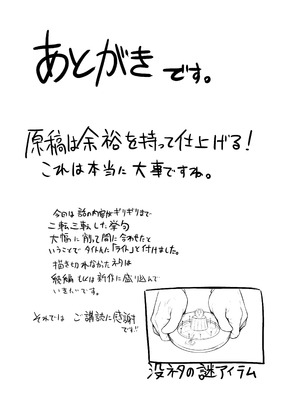 あとがきです。
原稿は余裕を持って仕上げる！
これは本当に大事ですね。
今回は話の内容がギリギリまで
二転三転した挙句
大幅に削って間に合わせたと
いうことでタイトルに「ライト」と付けました。
描き切れなかったネタは
続編もしくは新作に盛り込んで
いきたいです。
それでは ご講読に感謝
です!!
没ネタの謎アイテム